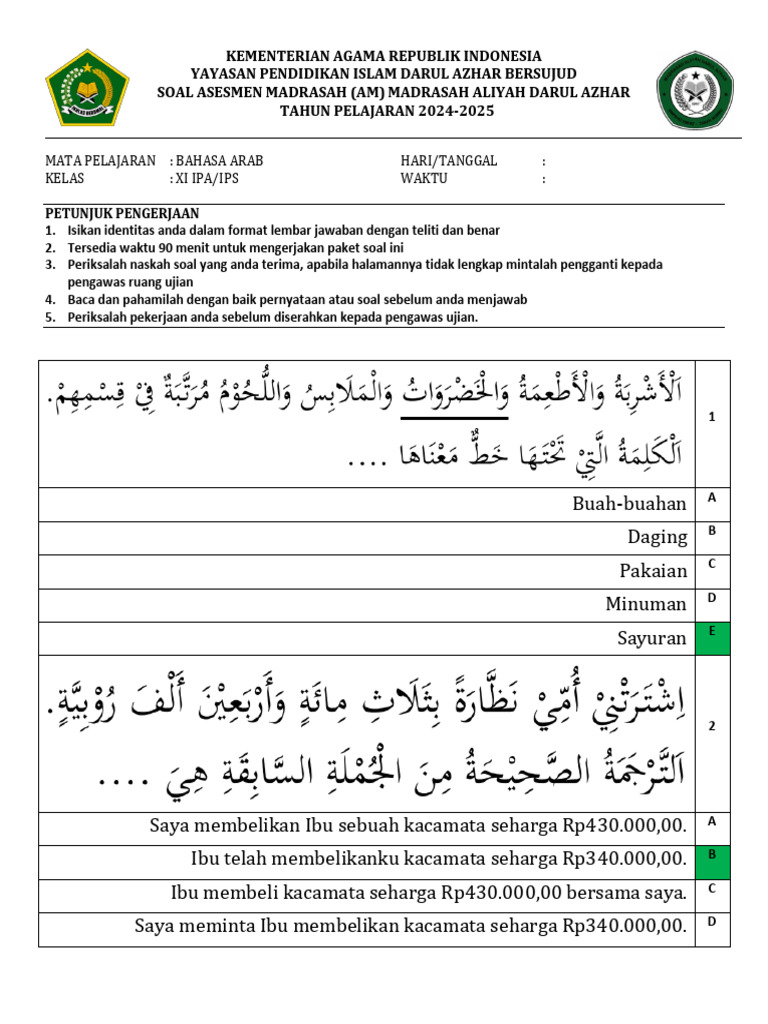 KEMENTERIAN AGAMA REPUBLIK INDONESIA
YAYASAN PENDIDIKAN ISLAM DARUL AZHAR BERSUJUD
SOAL ASESMEN MADRASAH (AM) MADRASAH ALIYAH DARUL AZHAR
TAHUN PELAJARAN 2024-2025
MATA PELAJARAN : BAHASA ARAB HARI/TANGGAL :
KELAS : XI IPA/IPS WAKTU :
PETUNJUK PENGERJAAN
1. Isikan identitas anda dalam format lembar jawaban dengan teliti dan benar
2. Tersedia waktu 90 menit untuk mengerjakan paket soal ini
3. Periksalah naskah soal yang anda terima, apabila halamannya tidak lengkap mintalah pengganti kepada
pengawas ruang ujian
4. Baca dan pahamilah dengan baik pernyataan atau soal sebelum anda menjawab
5. Periksalah pekerjaan anda sebelum diserahkan kepada pengawas ujian.
1
اَلْأَشْرِبَةُ وَالْأَطْعِمَةُ وَالْخَضْرَوَاتُ وَالْمَلَابِسُ وَاللُّحُوْمُ مُرَتَّبَةٌ فِيْ قِسْمِهِمْ.
اَلْكَلِمَةُ الَّتِيْ تَحْتَهَا خَطٌّ مَعْنَاهَا ....
Buah-buahan A
Daging B
Pakaian C
Minuman D
Sayuran E
2
اِشْتَرَتْنِيْ أُمِّيْ نَظَّارَةً بِثَلَاثِ مِائَةٍ وَأَرْبَعِيْنَ أَلْفَ رُوْبِيَّةٍ.
اَلتَّرْجَمَةُ الصَّحِيْحَةُ مِنَ الْجُمْلَةِ السَّابِقَةِ هِيَ ....
Saya membelikan Ibu sebuah kacamata seharga Rp430.000,00. A
Ibu telah membelikanku kacamata seharga Rp340.000,00. B
Ibu membeli kacamata seharga Rp430.000,00 bersama saya. C
Saya meminta Ibu membelikan kacamata seharga Rp340.000,00. D